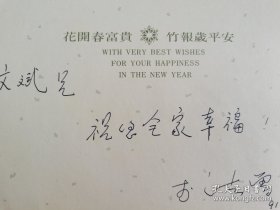 花開春富貴 竹報歲平安
WITH VERY BEST WISHES
FOR YOUR HAPPINESS
IN THE NEW YEAR
文斌兄
祝您全家幸福!